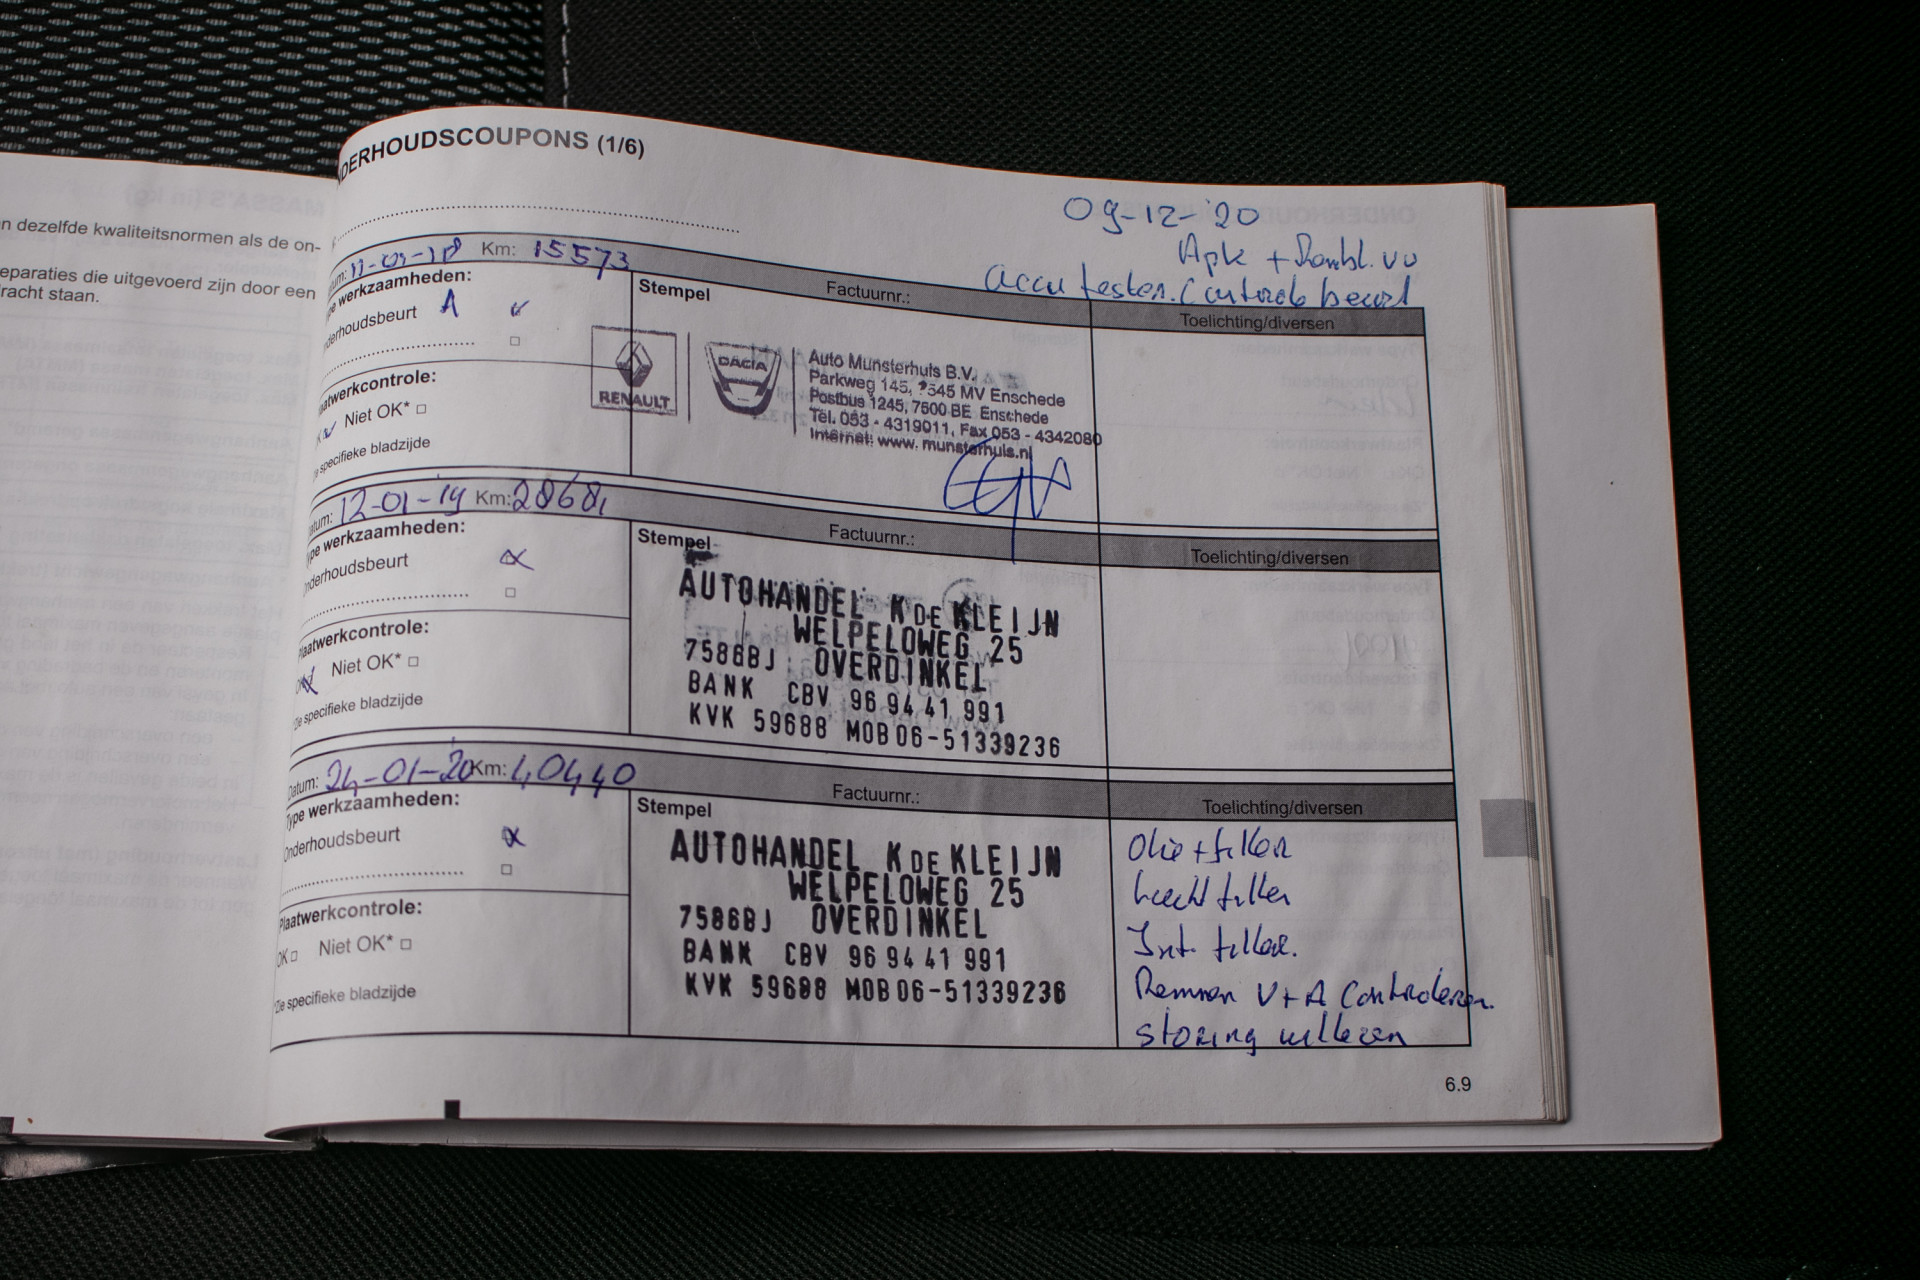 n dezelfde kwaliteitsnormen als de on-
eparaties die uitgevoerd zijn door een
racht staan.
NDERHOUDSCOUPONS (1/6)
09-12-'20
Apk + Rembl. vv
accu testen. Controle beurt
Km: 15573
Factuurnr.:
Toelichting/diversen
pe werkzaamheden:
Stempel
nderhoudsbeurt A
aatwerkcontrole:
Niet OK*
e specifieke bladzijde
RENAULT
DACIA
Auto Munsterhuis B.V.
Parkweg 145, 7545 MV Enschede
Postbus 1245, 7500 BE Enschede
Tel. 053 - 4319011, Fax 053 - 4342080
Internet: www. munsterhuis.nl
atum: 12-01-'19 Km: 28681
Factuurnr.:
Toelichting/diversen
ype werkzaamheden:
Stempel
nderhoudsbeurt
Plaatwerkcontrole:
OK Niet OK*
*Zie specifieke bladzijde
AUTOHANDEL K DE KLEIJN
WELPELOWEG 25
7586BJ OVERDINKEL
BANK CBV 96 94 41 991
KVK 59688 MOB 06-51339236
Datum: 24-01-'20 Km: 40440
Factuurnr.:
Toelichting/diversen
Type werkzaamheden:
Stempel
Onderhoudsbeurt
Plaatwerkcontrole:
OK Niet OK*
*Zie specifieke bladzijde
AUTOHANDEL K DE KLEIJN
WELPELOWEG 25
7586BJ OVERDINKEL
BANK CBV 96 94 41 991
KVK 59688 MOB 06-51339236
Olie + filter
Lucht filter
Int. filter.
Remmen V+A Controleren.
storing uitlezen
6.9